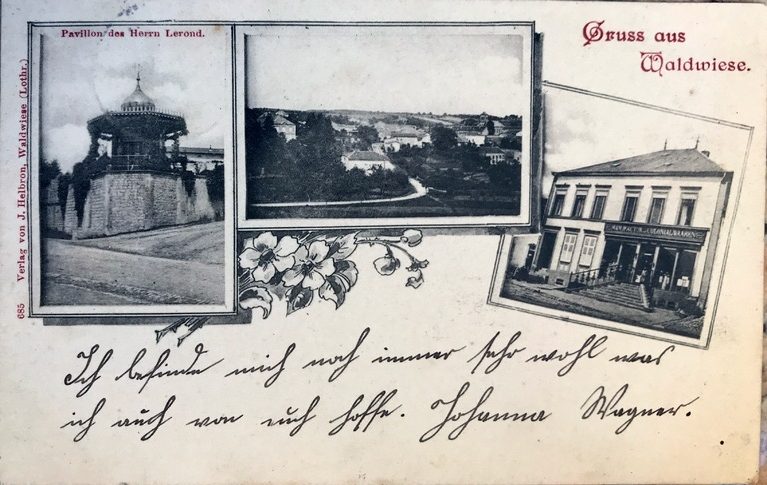 Pavillon des Herrn Lerond.
Gruss aus
Waldwiese.
685 Verlag von J. Heibron, Waldwiese (Lothr.)
MANUFACTUR- & COLONIALWAAREN
Ich befinde mich noch immer sehr wohl was
ich auch von euch hoffe. Johanna Wagner.